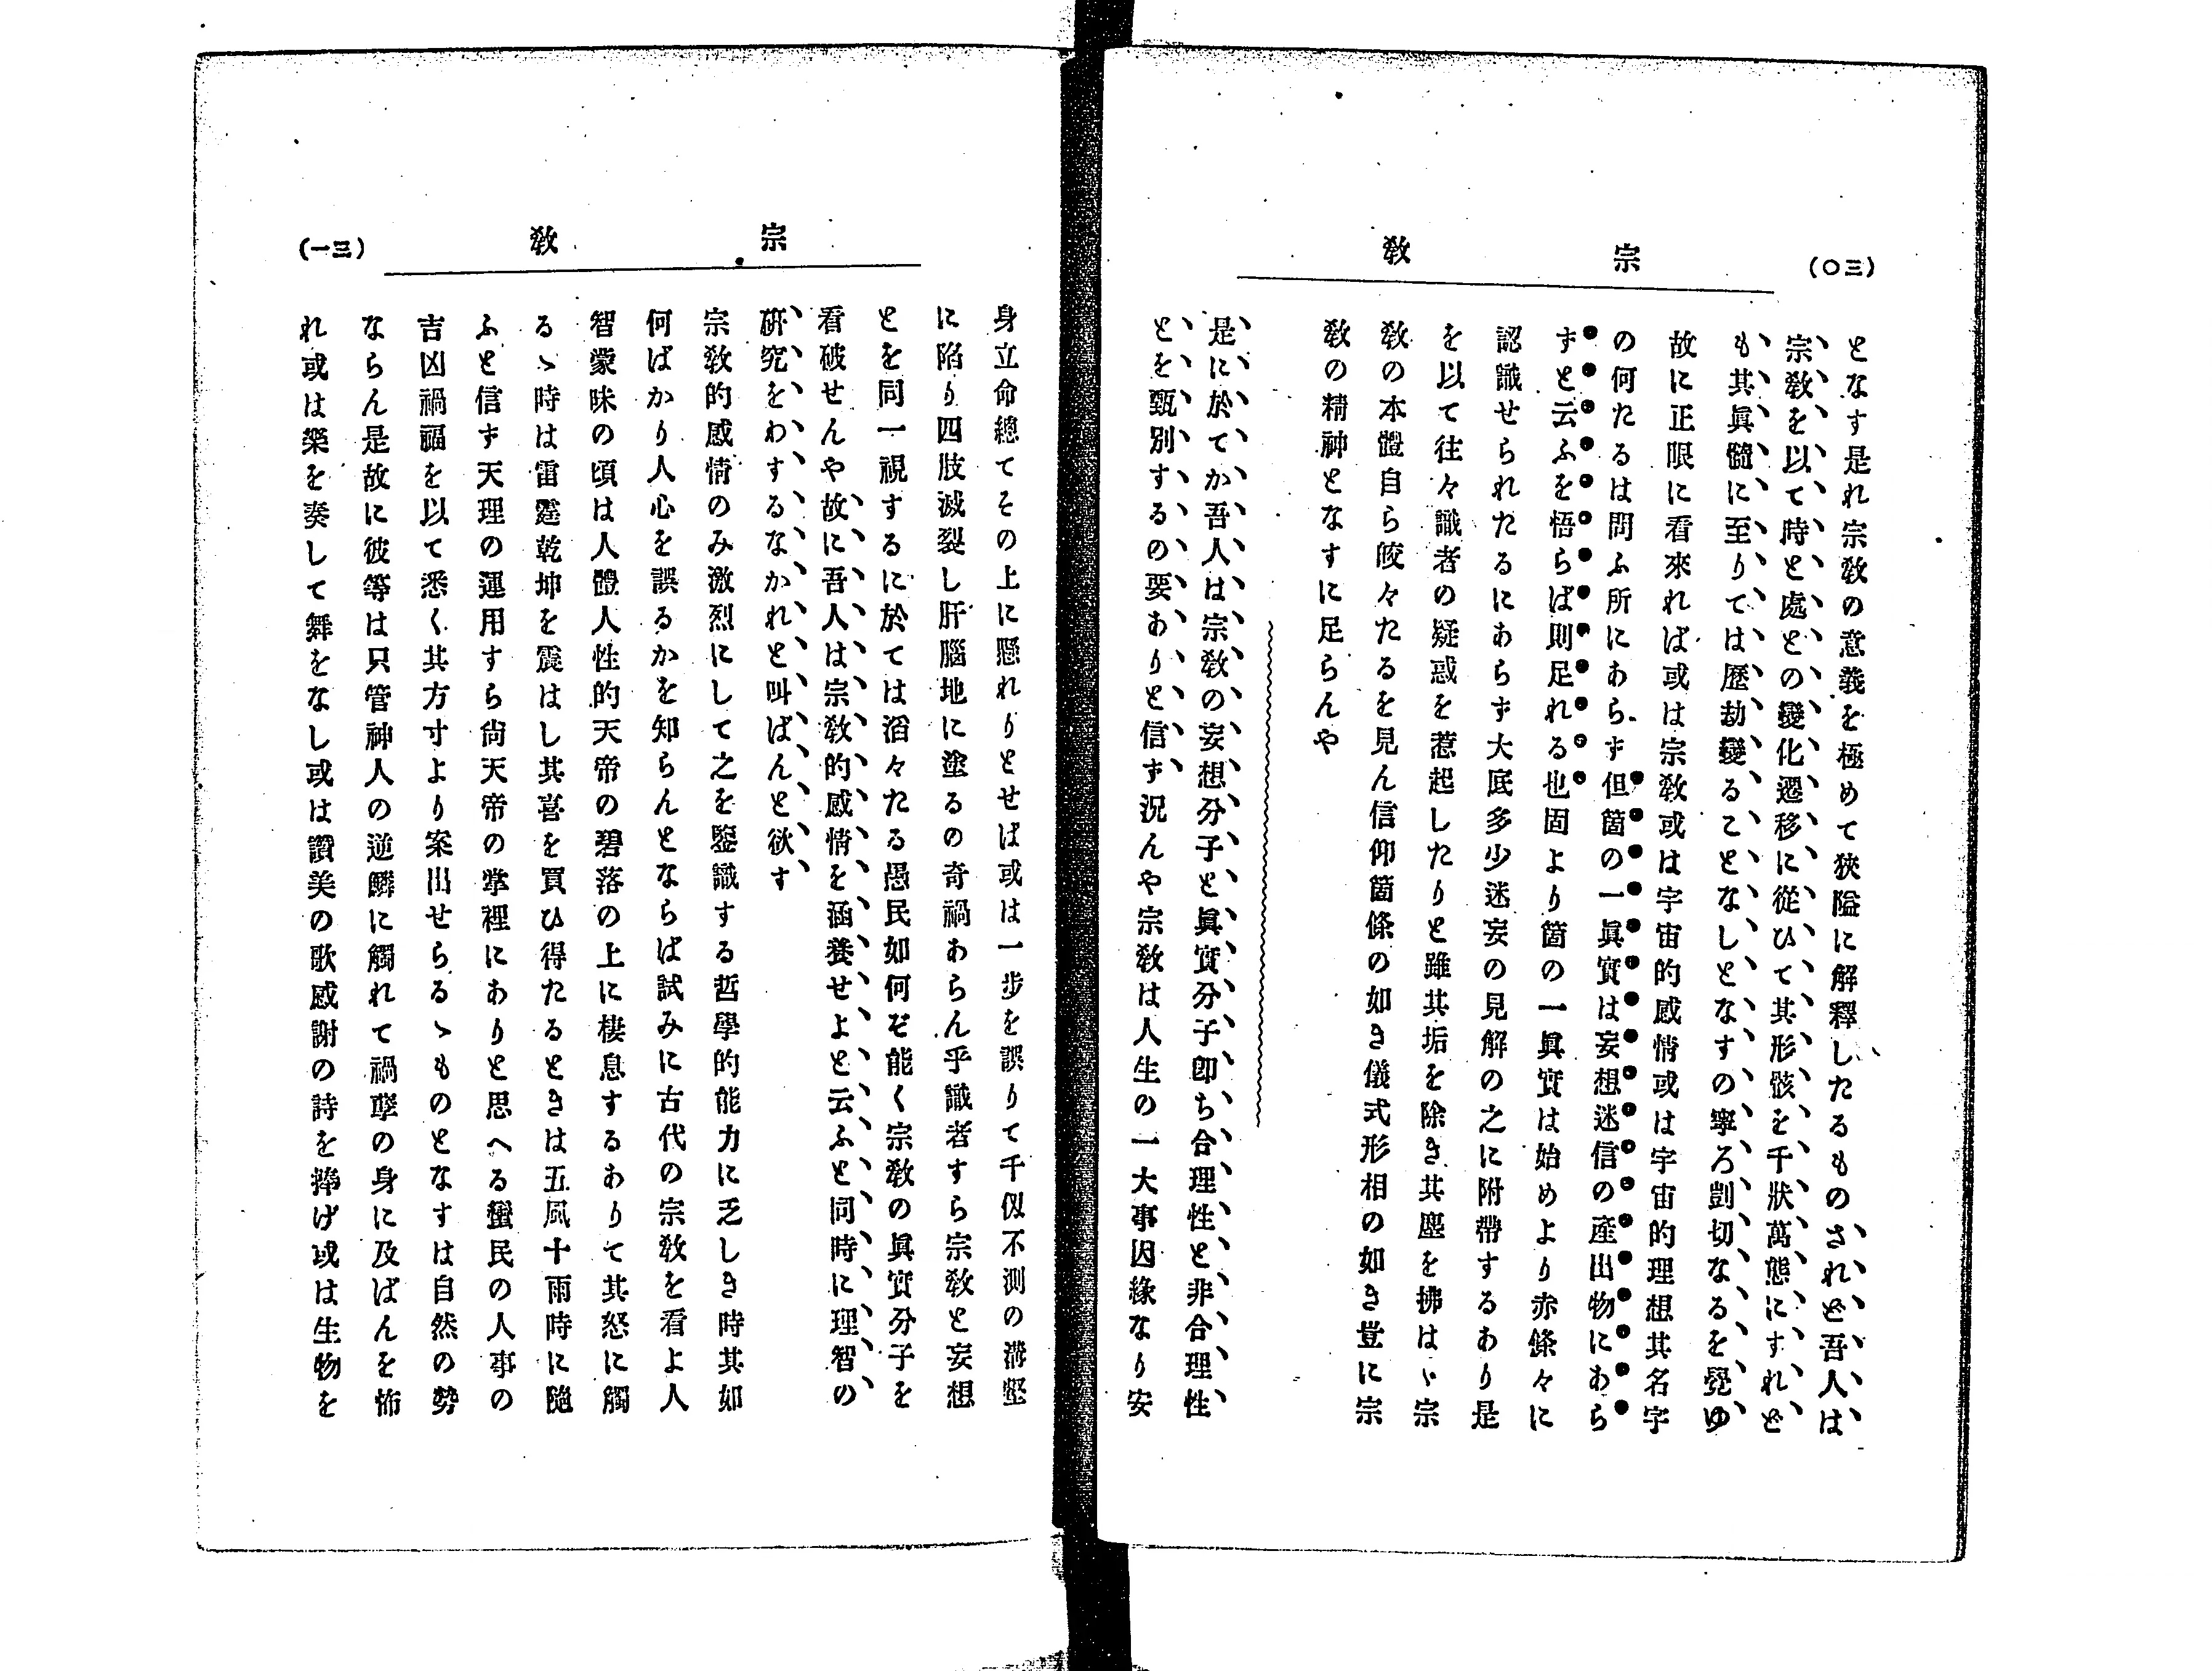 (三〇)
宗敎
となす是れ宗敎の意義を極めて狹隘に解釋したるものされど吾人は
宗敎を以て時と處との變化遷移に從ひて其形骸を千狀萬態にすれど
も其眞髓に至りては歷劫變ることなしとなすの寧ろ剴切なるを覺ゆ
故に正眼に看來れば或は宗敎或は宇宙的感情或は宇宙的理想其名字
の何たるは問ふ所にあらず但箇の一眞實は妄想迷信の產出物にあら
ずと云ふを悟らば則足れる也固より箇の一眞實は始めより赤條々に
認識せられたるにあらず大底多少迷妄の見解の之に附帶するあり是
を以て往々識者の疑惑を惹起したりと雖其垢を除き其塵を拂はゞ宗
敎の本體自ら皎々たるを見ん信仰箇條の如き儀式形相の如き豈に宗
敎の精神となすに足らんや
是に於てか吾人は宗敎の妄想分子と眞實分子卽ち合理性と非合理性
とを甄別するの要ありと信ず況んや宗敎は人生の一大事因緣なり安
(三一)
宗敎
身立命總てその上に懸れりとせば或は一步を誤りて千仭不測の溝壑
に陷り四肢滅裂し肝腦地に塗るの奇禍あらん乎識者すら宗敎と妄想
とを同一視するに於ては滔々たる愚民如何ぞ能く宗敎の眞實分子を
看破せんや故に吾人は宗敎的感情を涵養せよと云ふと同時に理智の
硏究をわするなかれと叫ばんと欲す
宗敎的感情のみ激烈にして之を鑒識する哲學的能力に乏しき時其如
何ばかり人心を誤るかを知らんとならば試みに古代の宗敎を看よ人
智蒙昧の頃は人體人性的天帝の碧落の上に棲息するありて其怒に觸
るゝ時は雷霆乾坤を震はし其喜を買ひ得たるときは五風十雨時に隨
ふと信ず天理の運用すら尙天帝の掌裡にありと思へる蠻民の人事の
吉凶禍福を以て悉く其方寸より案出せらるゝものとなすは自然の勢
ならん是故に彼等は只管神人の逆鱗に觸れて禍孼の身に及ばんを怖
れ或は樂を奏して舞をなし或は讚美の歌感謝の詩を捧げ或は生物を